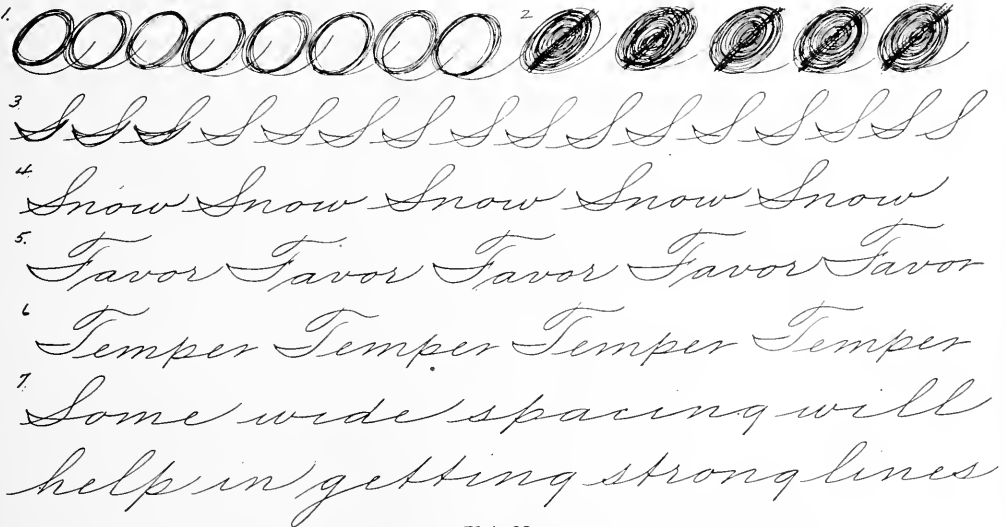 1. 2
3. S S S S S S S S S S S S S S S S
4. Snow Snow Snow Snow Snow
5. Favor Favor Favor Favor Favor
6 Temper Temper Temper Temper
7. Some wide spacing will
help in getting strong lines